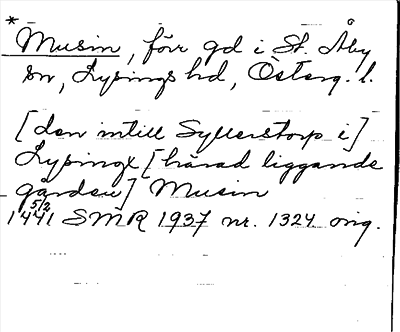 * Musin, förr gd i St. Åby
sn, Lysings hd, Österg. l.
[den intill Syllerstorp i]
Lysinge [härad liggande
gården] Musin
1441 5/2 SMR 1937 nr. 1324 orig.